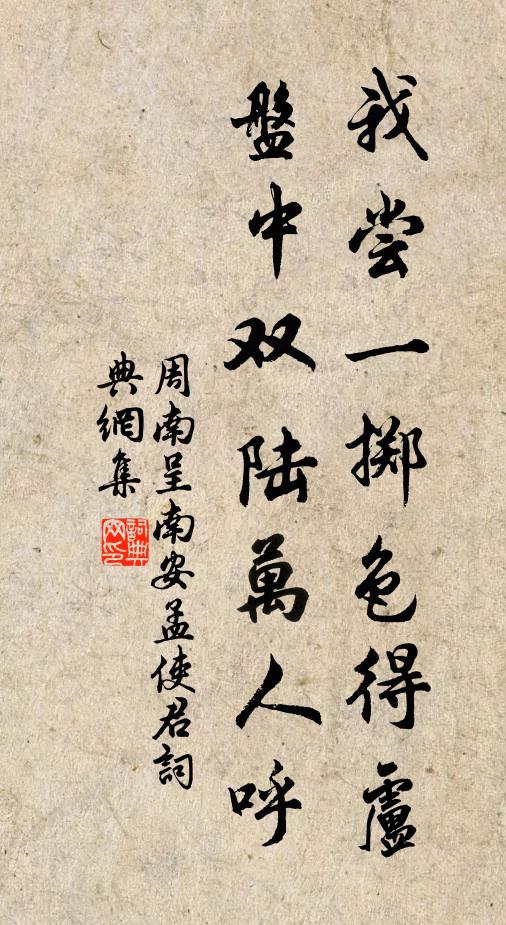 我尝一掷色得盧
盤中双陆萬人呼
周南呈南安孟使君詞
典網集
詞典
网印